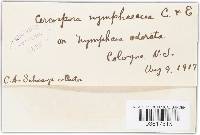 Cercospora nymphaeacea C. & E
on Nymphaea odorata
Cologne N.J.
Aug 9, 1917
C.A. Schwarze collector